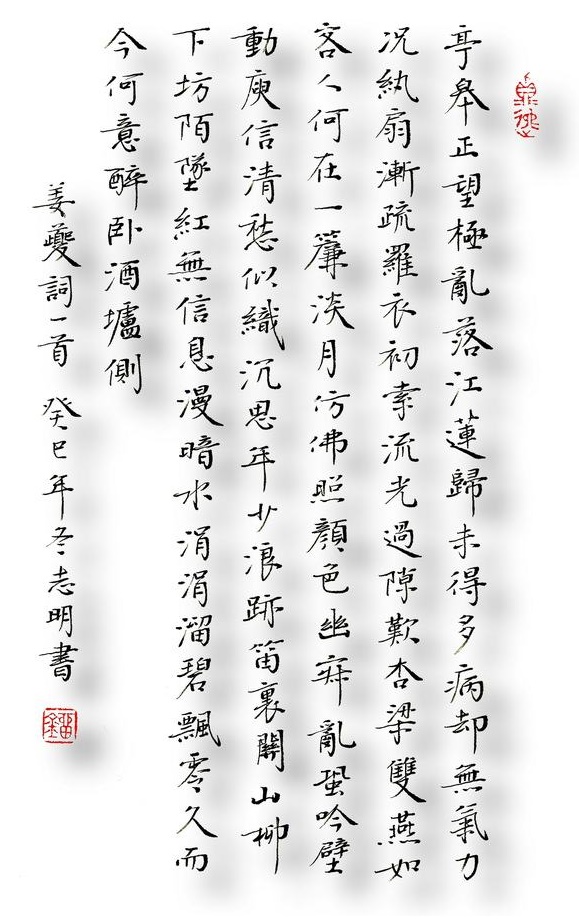 亭皋正望極亂落江蓮歸未得多病却無氣力
况紈扇漸疏羅衣初索流光過隙歎杏梁雙燕如
客人何在一簾淡月仿佛照顏色幽寂亂蛩吟壁
動庾信清愁似織沉思年少浪跡笛裏關山柳
下坊陌墜紅無信息漫暗水涓涓溜碧飄零久而
今何意醉卧酒壚側
姜夔詞一首 癸巳年冬志明書